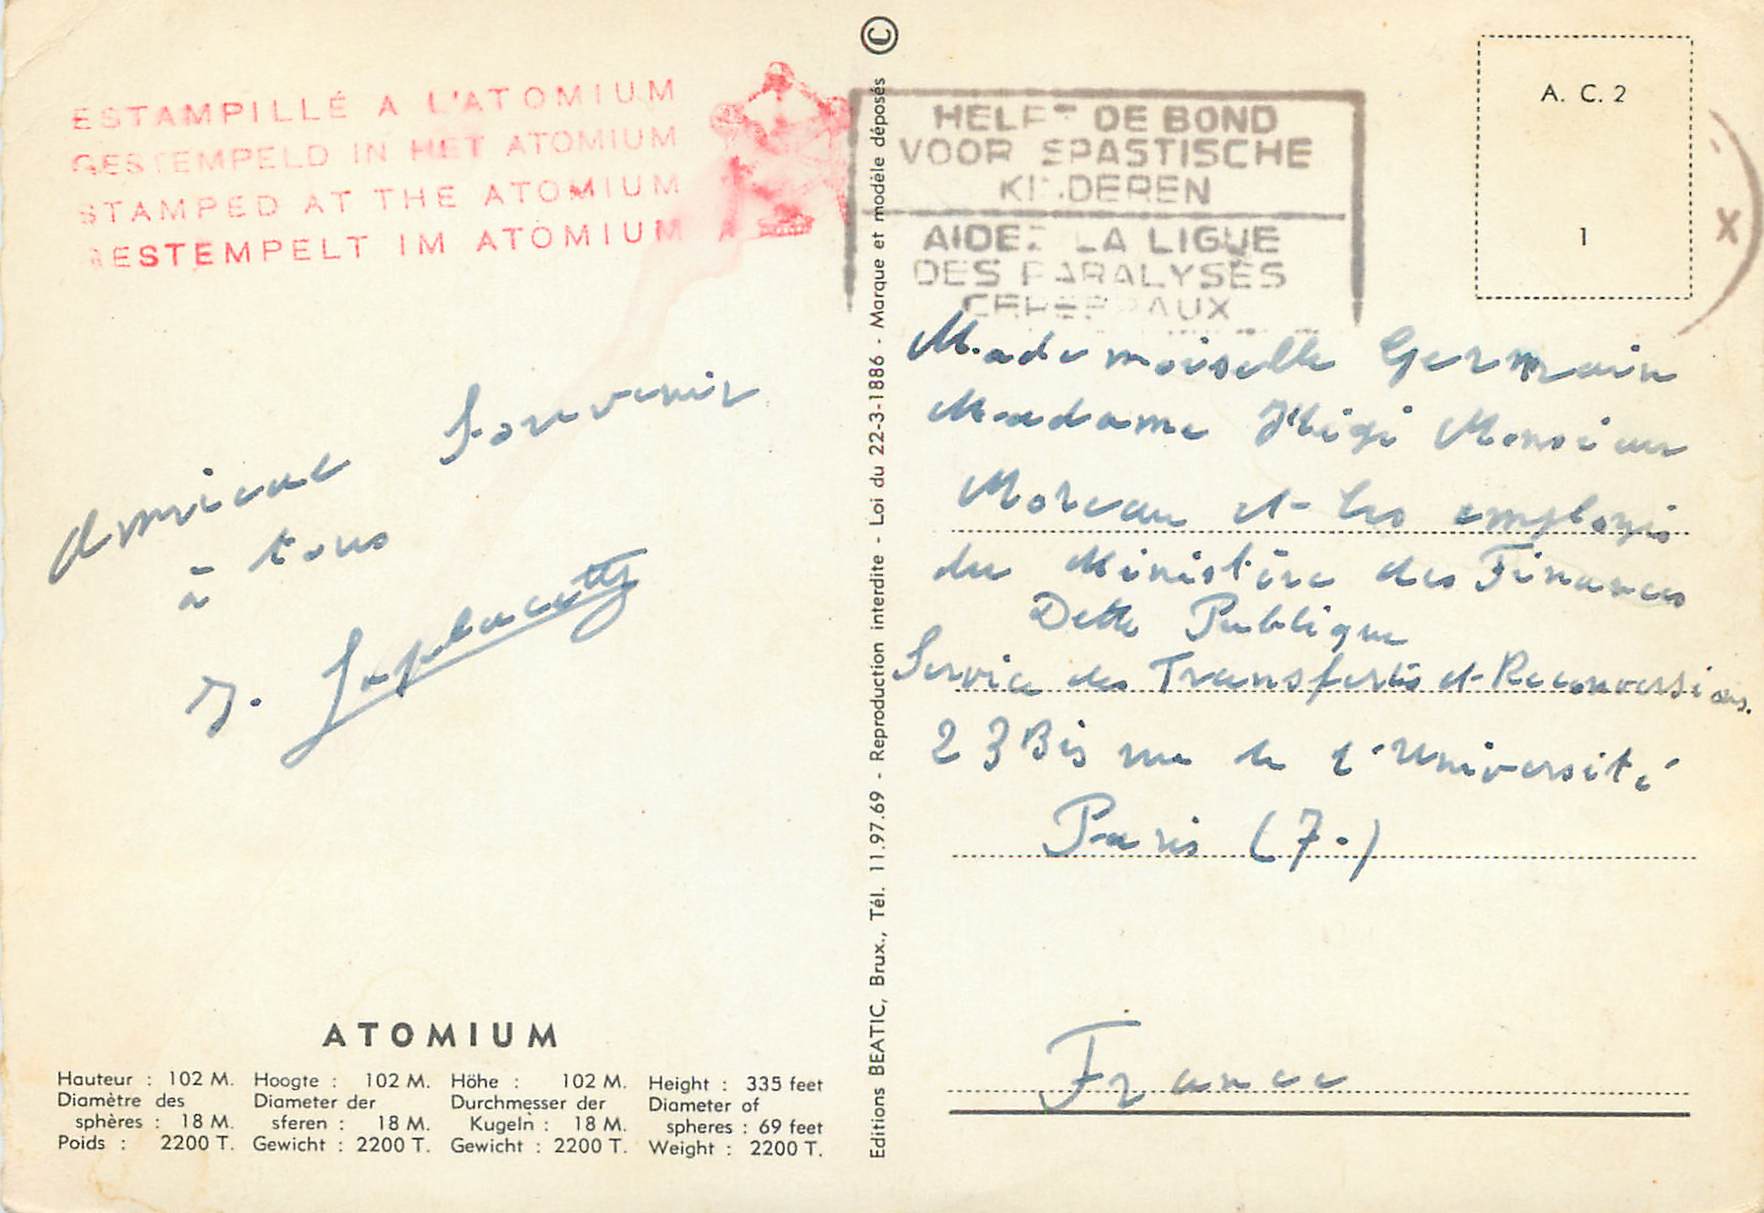 ESTAMPILLÉ A L'ATOMIUM
GESTEMPELD IN HET ATOMIUM
STAMPED AT THE ATOMIUM
GESTEMPELT IM ATOMIUM
Amical Souvenir
à tous
J.
ATOMIUM
Hauteur : 102 M.
Diamètre des
sphères : 18 M.
Poids : 2200 T.
Hoogte : 102 M.
Diameter der
sferen : 18 M.
Gewicht : 2200 T.
Höhe : 102 M.
Durchmesser der
Kugeln : 18 M.
Gewicht : 2200 T.
Height : 335 feet
Diameter of
spheres : 69 feet
Weight : 2200 T.
Editions BEATIC, Brux., Tél. 11.97.69 - Reproduction interdite - Loi du 22-3-1886 - Marque et modèle déposés ©
HELPT DE BOND
VOOR SPASTISCHE
KINDEREN
AIDEZ LA LIGUE
DES PARALYSÉS
CEREBRAUX
A. C. 2
1
X
Mademoiselle Germain
Madame Monsieur
Moreau et les employés
du Ministère des Finances
Dette Publique
Service des Transferts et Reconversions.
23 Bis rue de l'Université
Paris (7.)
France